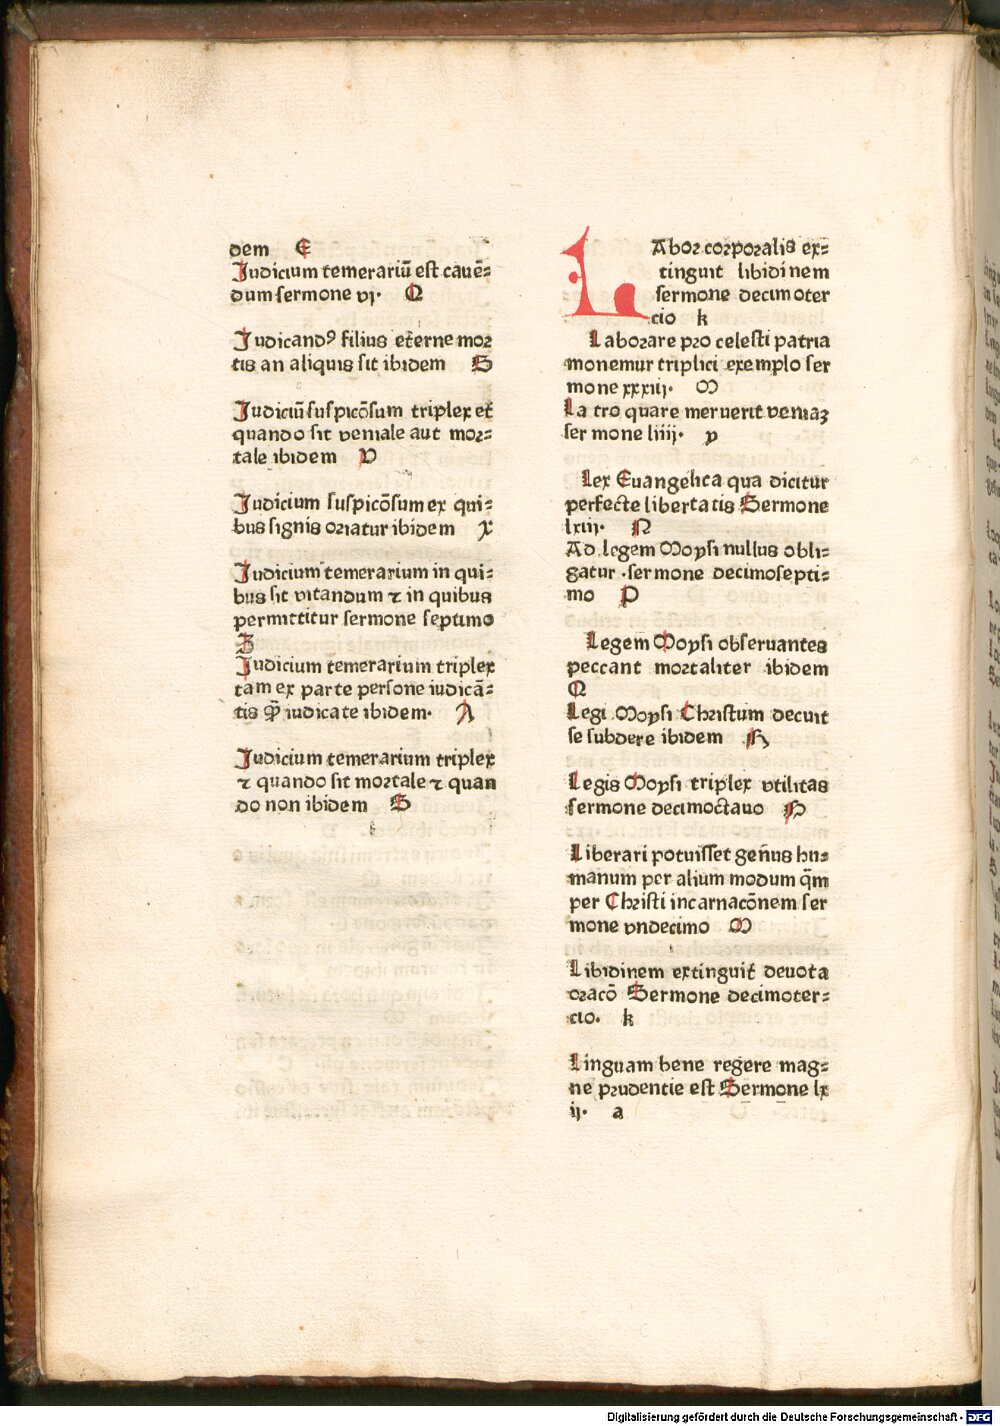 dem E
Judicium temerariū est cauē=
dum sermone vj. Q
Judicandꝰ filius eterne mor
tis an aliquis sit ibidem S
Judiciū suspicōsum triplex et
quando sit veniale aut mor=
tale ibidem V
Judicium suspicōsum ex qui=
bus signis oriatur ibidem X
Judicium temerarium in qui=
bus sit vitandum ⁊ in quibus
permittitur sermone septimo
Z
Judicium temerarium triplex
tam ex parte persone iudicā=
tis ꝙ̄ iudicate ibidem. A
Judicium temerarium triplex
⁊ quando sit mortale ⁊ quan
do non ibidem S
LAbor corporalis ex=
tinguit libidinem
sermone decimoter
cio k
Laborare pro celesti patria
monemur triplici exemplo ser
mone xxxiij. M
Latro quare meruerit veniaꝫ
sermone liiij. p
Lex Euangelica qua dicitur
perfecte libertatis Sermone
lxiij. N
Ad legem Moysi nullus obli=
gatur .sermone decimosepti=
mo P
Legem Moysi obseruantes
peccant mortaliter ibidem
Q
Legi Moysi Christum decuit
se subdere ibidem R
Legis Moysi triplex vtilitas
sermone decimoctauo H
Liberari potuisset gen̄us hu=
manum per alium modum q̄m
per Christi incarnacōnem ser
mone vndecimo M
Libidinem extinguit deuota
oracō Sermone decimoter=
cio. k
Linguam bene regere mag=
ne prudentie est Sermone lx
ij. a
Digitalisierung gefördert durch die Deutsche Forschungsgemeinschaft - DFG